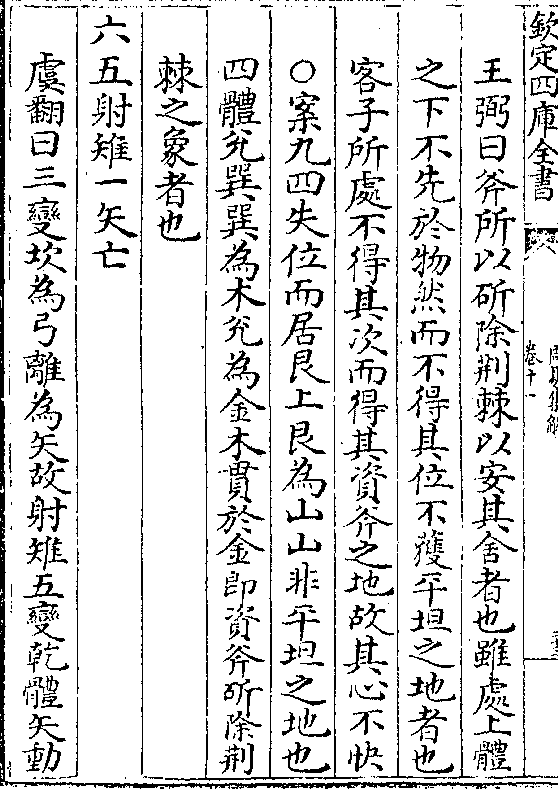 欽定四庫全書
卷十一
王弼曰斧所以斫除荆棘以安其舍者也雖處上體
之下不先於物然而不得其位不獲平坦之地者也
客子所處不得其次而得其資斧之地故其心不快
○案九四失位而居艮上艮為山山非平坦之地也
四體兊巽巽為木兊為金木貫於金即資斧斫除荆
棘之象者也
六五射雉一矢亡
虞翻曰三變坎為弓離為矢故射雉五變乾體矢動